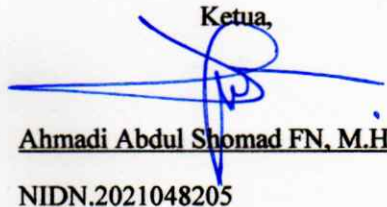 Ketua,
Ahmadi Abdul Shomad FN, M.H
NIDN.2021048205